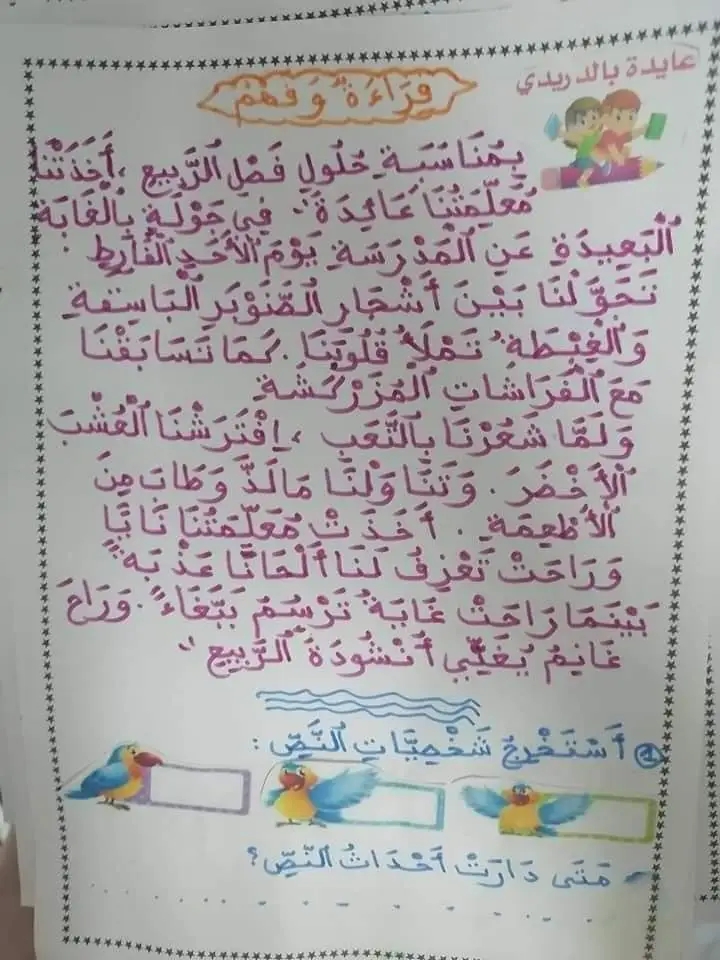 عايدة بالدريدي
قِرَاءَةٌ وَ فَهْمٌ
بِمُنَاسَبَةِ حُلُولِ فَصْلِ الرَّبِيعِ ،أَخَذَتْنَا
مُعَلِّمَتُنَا عَائِدَةُ فِي جَوْلَةٍ بِالْغَابَةِ
الْبَعِيدَةِ عَنِ الْمَدْرَسَةِ يَوْمَ الْأَحَدِ الْفَارِطِ .
تَجَوَّلْنَا بَيْنَ أَشْجَارِ الصَّنَوْبَرِ الْبَاسِقَةِ
وَالْغِبْطَةُ تَمْلَأُ قُلُوبَنَا . كَمَا تَسَابَقْنَا
مَعَ الْفَرَاشَاتِ الْمُزَرْكَشَةِ
وَلَمَّا شَعُرْنَا بِالتَّعَبِ ، اِفْتَرَشْنَا الْعُشْبَ
الْأَخْضَرَ . وَتَنَاوَلْنَا مَا لَذَّ وَطَابَ مِنَ
الْأَطْعِمَةِ . أَخَذَتْ مُعَلِّمَتُنَا نَايًا
وَرَاحَتْ تَعْزِفُ لَنَا أَلْحَانًا عَذْبَةً
بَيْنَمَا رَاحَتْ غَايَةُ تَرْسُمُ بَبَّغَاءً . وَرَاحَ
غَانِمُ يُغَنِّي أُنْشُودَةَ الرَّبِيعِ "
1 أَسْتَخْرِجُ شَخْصِيَّاتِ النَّصِّ :
- مَتَى دَارَتْ أَحْدَاثُ النَّصِّ ؟